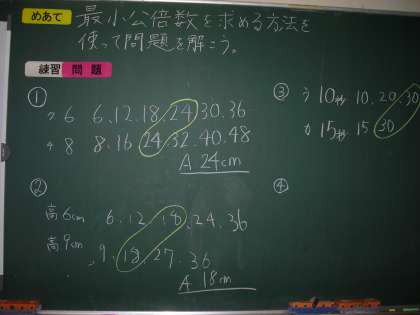 めあて
最小公倍数を求める方法を
使って問題を解こう。
練習問題
①
ア 6 6.12.18.24.30.36
イ 8 8.16 24.32.40.48
A 24cm
②
高6cm 6.12.18.24.36
高9cm 9.18.27.36
A 18cm
③
う 10秒 10.20.30
か 15秒 15 30
④